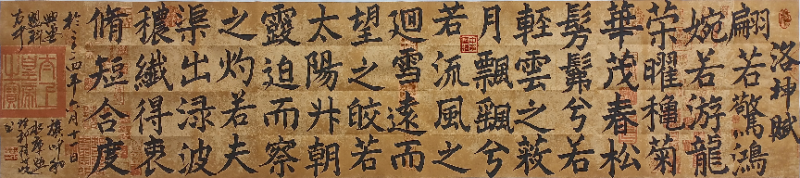 洛神賦
翩若驚鴻
婉若游龍
荣曜穐菊
華茂春松
髣髴兮若
輕雲之蔽
月飄飖兮
若流風之
迴雪遠而
望之皎若
太陽升朝
霞迫而察
之灼若夫
渠出渌波
穠纖得衷
脩短合度